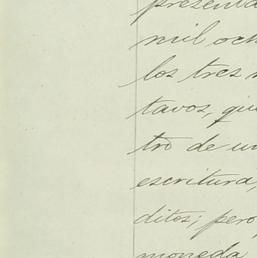 presenta
mil och
los tres
tavos, que
tro de un
escritura,
ditos; pero,
moneda